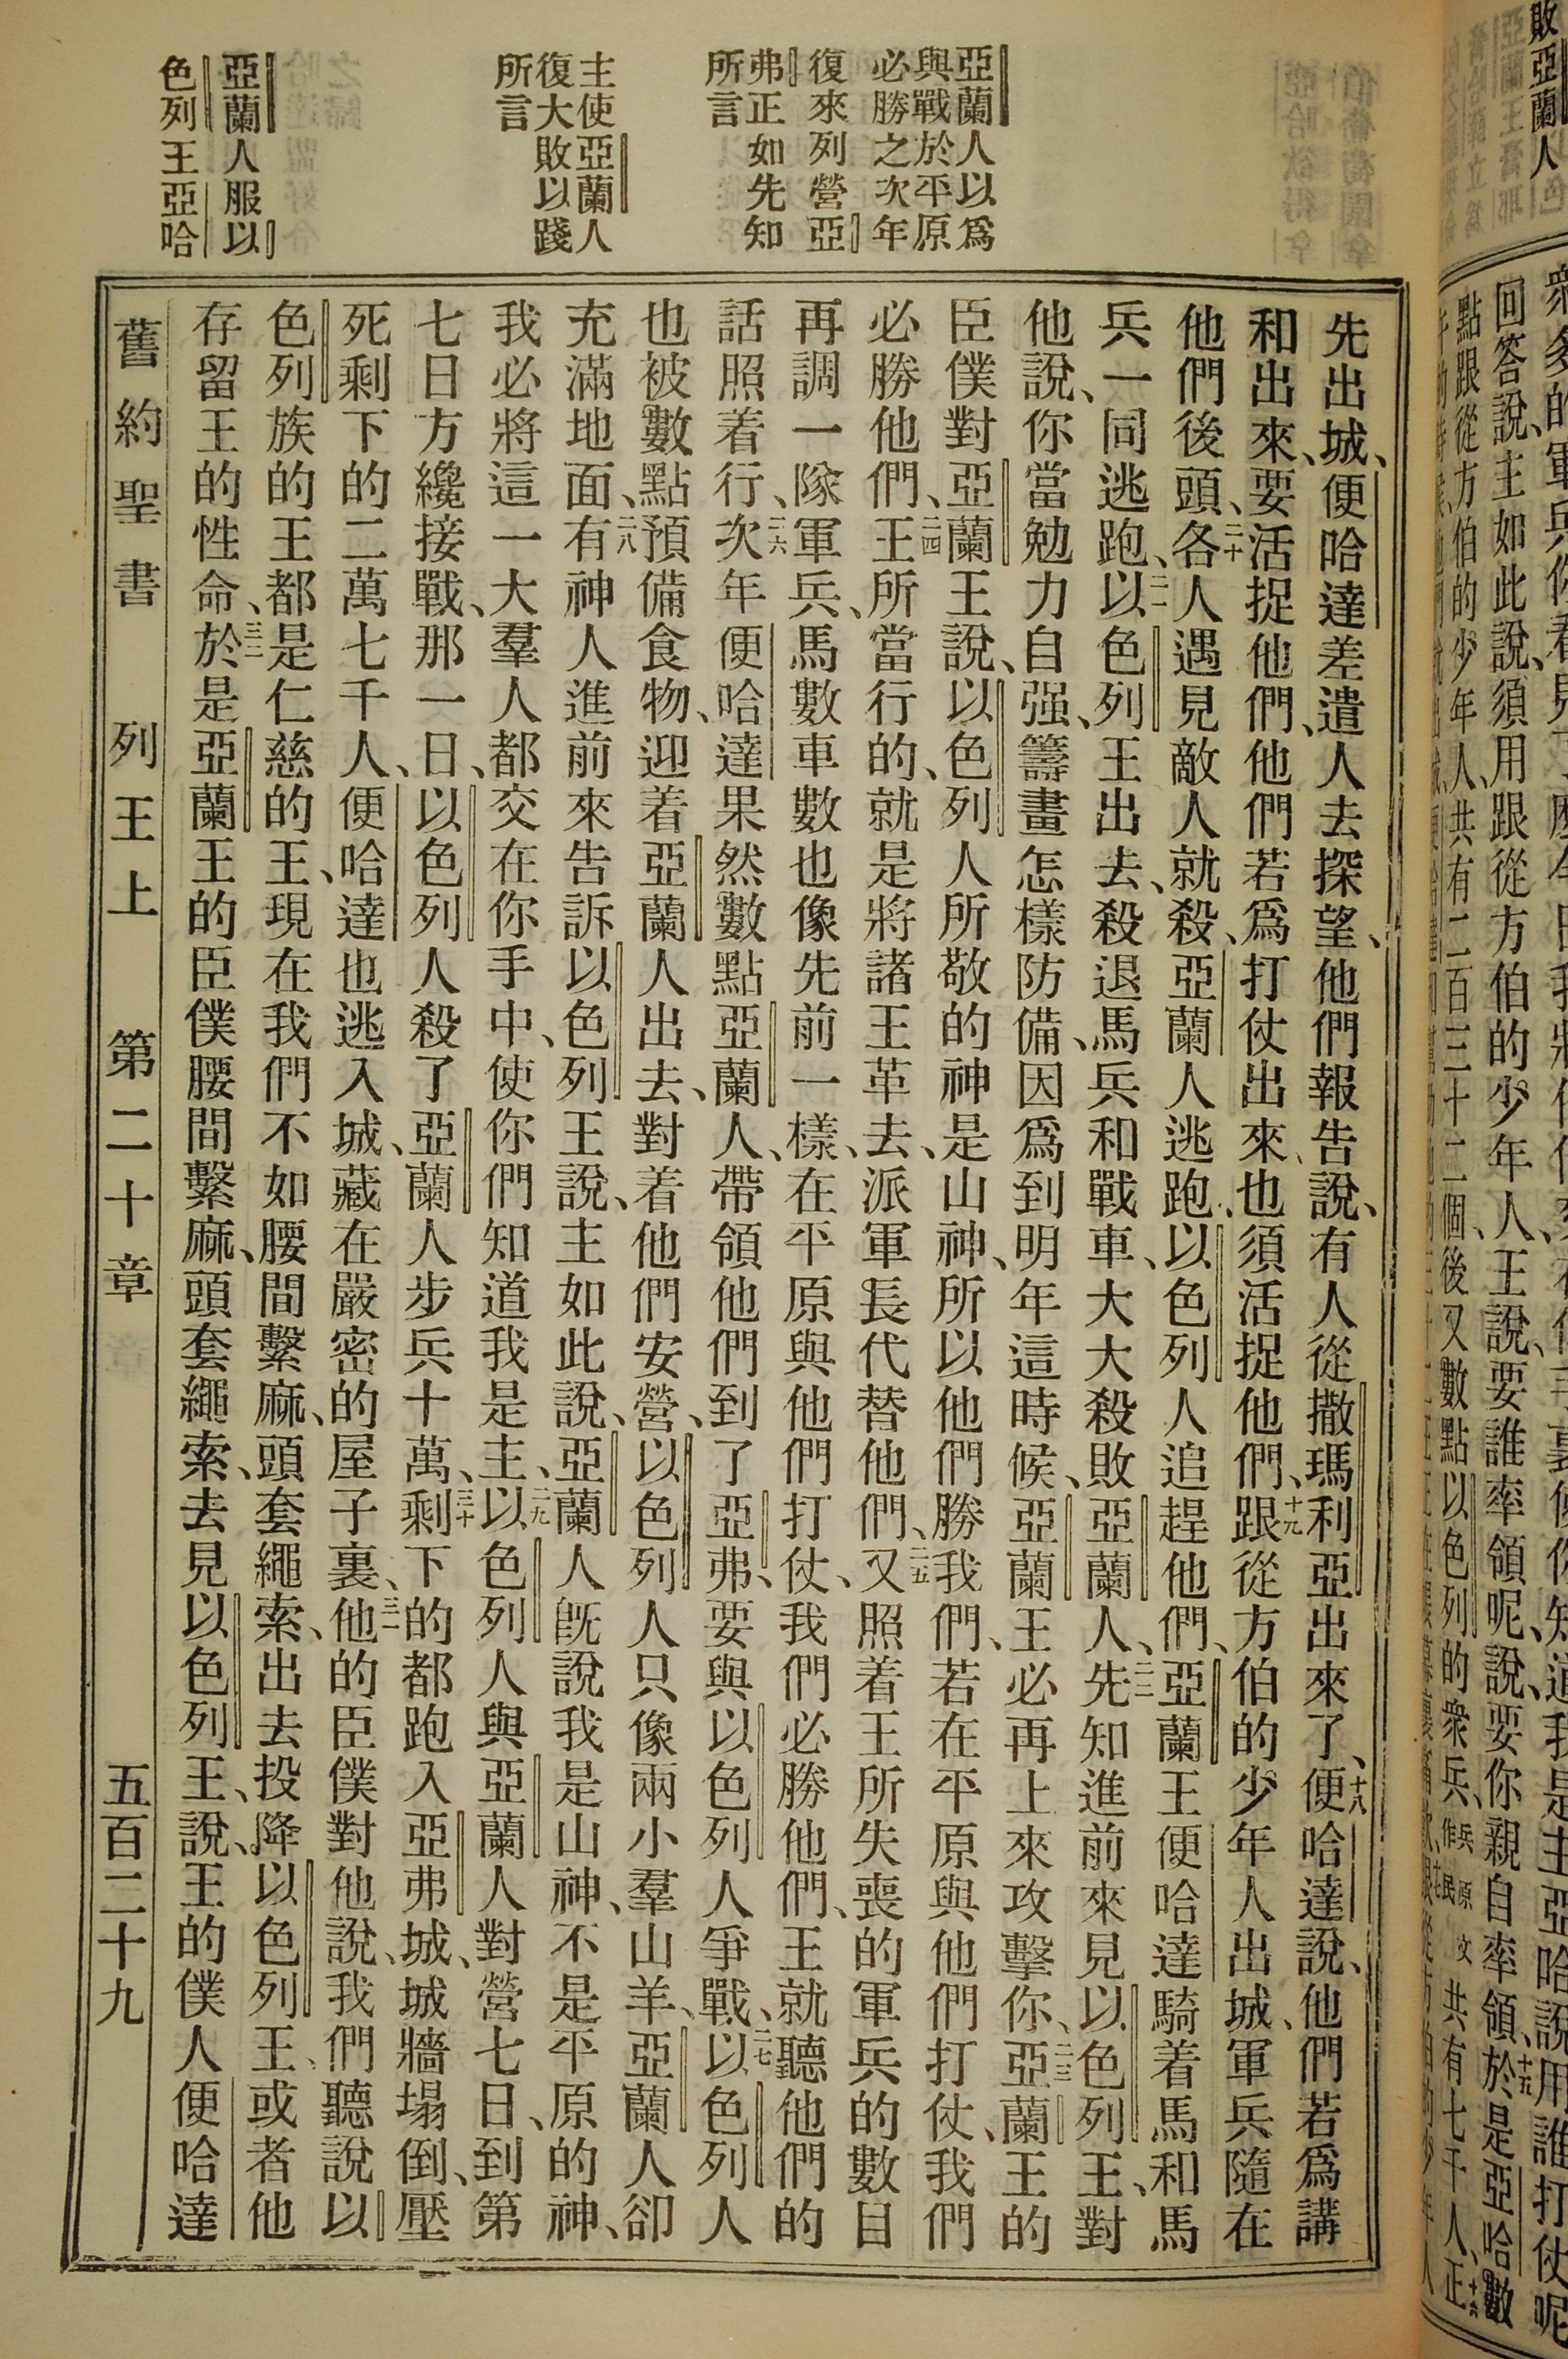 亞蘭人以爲
與戰於平原
必勝之次年
復來列營亞
弗正如先知
所言
主使亞蘭人
復大敗以踐
所言
亞蘭人服以
色列王亞哈
先出城、便哈達差遣人去探望、他們報告說、有人從撒瑪利亞出來了、十八便哈達說、他們若爲講
和出來、要活捉他們、他們若爲打仗出來、也須活捉他們、十九跟從方伯的少年人出城、軍兵隨在
他們後頭、二十各人遇見敵人就殺、亞蘭人逃跑、以色列人追趕他們、亞蘭王便哈達騎着馬和馬
兵一同逃跑、二一以色列王出去、殺退馬兵和戰車、大大殺敗亞蘭人、二二先知進前來見以色列王、對
他說、你當勉力自强、籌畫怎樣防備、因爲到明年這時候、亞蘭王必再上來攻擊你、二三亞蘭王的
臣僕對亞蘭王說、以色列人所敬的神是山神、所以他們勝我們、若在平原與他們打仗、我們
必勝他們、二四王所當行的、就是將諸王革去、派軍長代替他們、二五又照着王所失喪的軍兵的數目
再調一隊軍兵、馬數車數也像先前一樣、在平原與他們打仗、我們必勝他們、王就聽他們的
話照着行、二六次年便哈達果然數點亞蘭人、帶領他們到了亞弗、要與以色列人爭戰、二七以色列人
也被數點預備食物、迎着亞蘭人出去、對着他們安營、以色列人只像兩小羣山羊、亞蘭人卻
充滿地面、二八有神人進前來告訴以色列王說、主如此說、亞蘭人旣說我是山神、不是平原的神、
我必將這一大羣人都交在你手中、使你們知道我是主、二九以色列人與亞蘭人對營七日、到第
七日方纔接戰、那一日、以色列人殺了亞蘭人步兵十萬、三十剩下的都跑入亞弗城、城牆塌倒、壓
死剩下的二萬七千人、便哈達也逃入城、藏在嚴密的屋子裏、三一他的臣僕對他說、我們聽說以
色列族的王都是仁慈的王、現在我們不如腰間繫麻、頭套繩索、出去投降以色列王、或者他
存留王的性命、三二於是亞蘭王的臣僕腰間繫麻、頭套繩索、去見以色列王、說、王的僕人便哈達
舊約聖書 列王上 第二十章 五百二十九